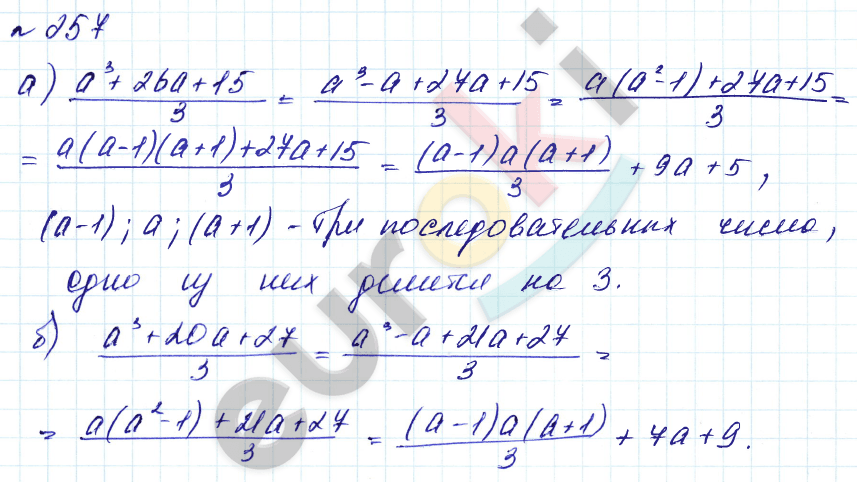 № 257
а) (a³ + 26a + 15)/3 = (a³ - a + 27a + 15)/3 = (a(a² - 1) + 27a + 15)/3 =
= (a(a-1)(a+1) + 27a + 15)/3 = ((a-1)a(a+1))/3 + 9a + 5,
(a-1); a; (a+1) - три последовательных числа,
одно из них делится на 3.
б) (a³ + 20a + 27)/3 = (a³ - a + 21a + 27)/3 =
= (a(a² - 1) + 21a + 27)/3 = ((a-1)a(a+1))/3 + 7a + 9.
euroki